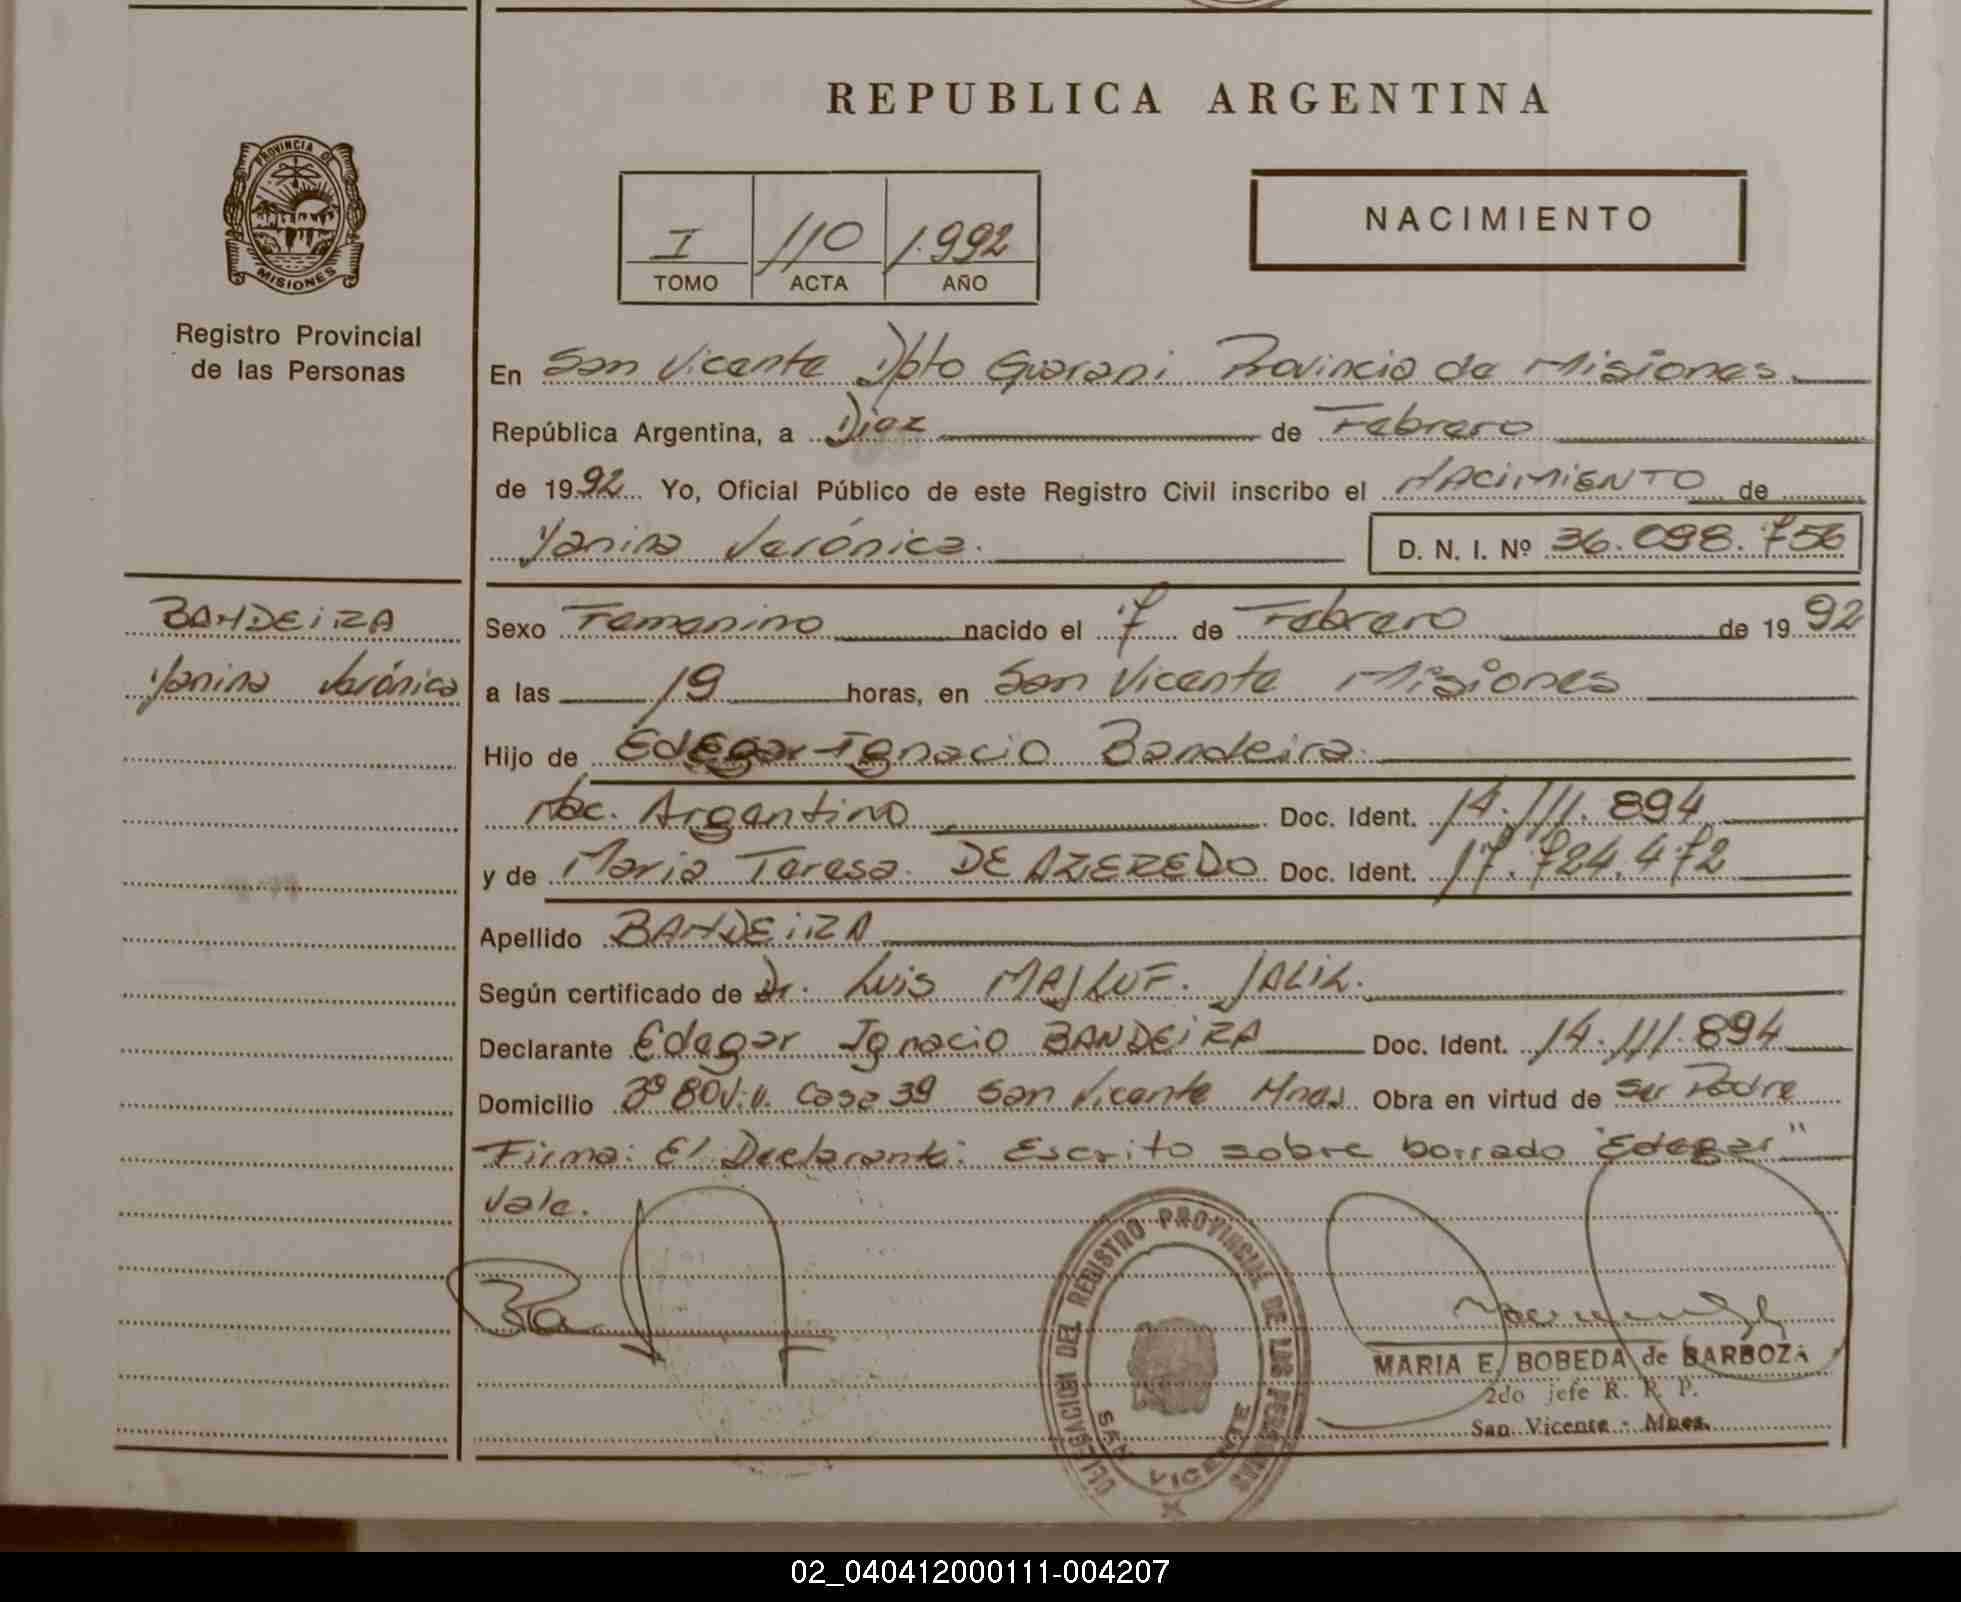 REPUBLICA ARGENTINA
PROVINCIA DE
MISIONES
Registro Provincial
de las Personas
I 110 1.992
TOMO ACTA AÑO
NACIMIENTO
En San Vicente Dpto Guarani Provincia de Misiones.
República Argentina, a Diez de Febrero
de 1992 Yo, Oficial Público de este Registro Civil inscribo el NACIMIENTO de
Yanina Verónica.
D. N. I. Nº 36.098.756
BANDEIRA
Yanina Verónica
Sexo Femenino nacido el 7 de Febrero de 1992
a las 19 horas, en San Vicente Misiones
Hijo de Edegar Ignacio Bandeira.
Nac. Argentino Doc. Ident. 14.111.894
y de Maria Teresa. DE AZEREDO Doc. Ident. 17.724.472
Apellido BANDEIRA
Según certificado de Dr. Luis MAJLUF. JALIL.
Declarante Edegar Ignacio BANDEIRA Doc. Ident. 14.111.894
Domicilio 3º 80 V.V. Casa 39 San Vicente Mnes Obra en virtud de ser Padre
Firma: El Declarante: Escrito sobre borrado "Edegar"
Vale.
DELEGACION DEL REGISTRO PROVINCIAL DE LAS PERSONAS
SAN VICENTE
MARIA E. BOBEDA de BARBOZA
2do jefe R. R. P.
San Vicente - Mnes.
02_040412000111-004207